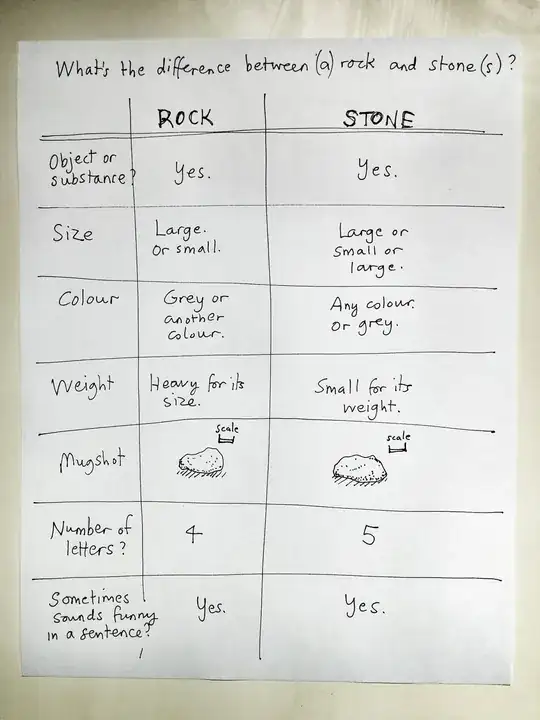 What's the difference between (a) rock and stone(s)?
ROCK STONE
Object or
substance?
Yes.
Yes.
Size
Large.
Or small.
Large or
small or
large.
Colour
Grey or
another
colour.
Any colour.
Or grey.
Weight
Heavy for its
size.
Small for its
weight.
Mugshot
scale
scale
Number of
letters?
4
5
Sometimes
sounds funny
in a sentence?
Yes.
Yes.